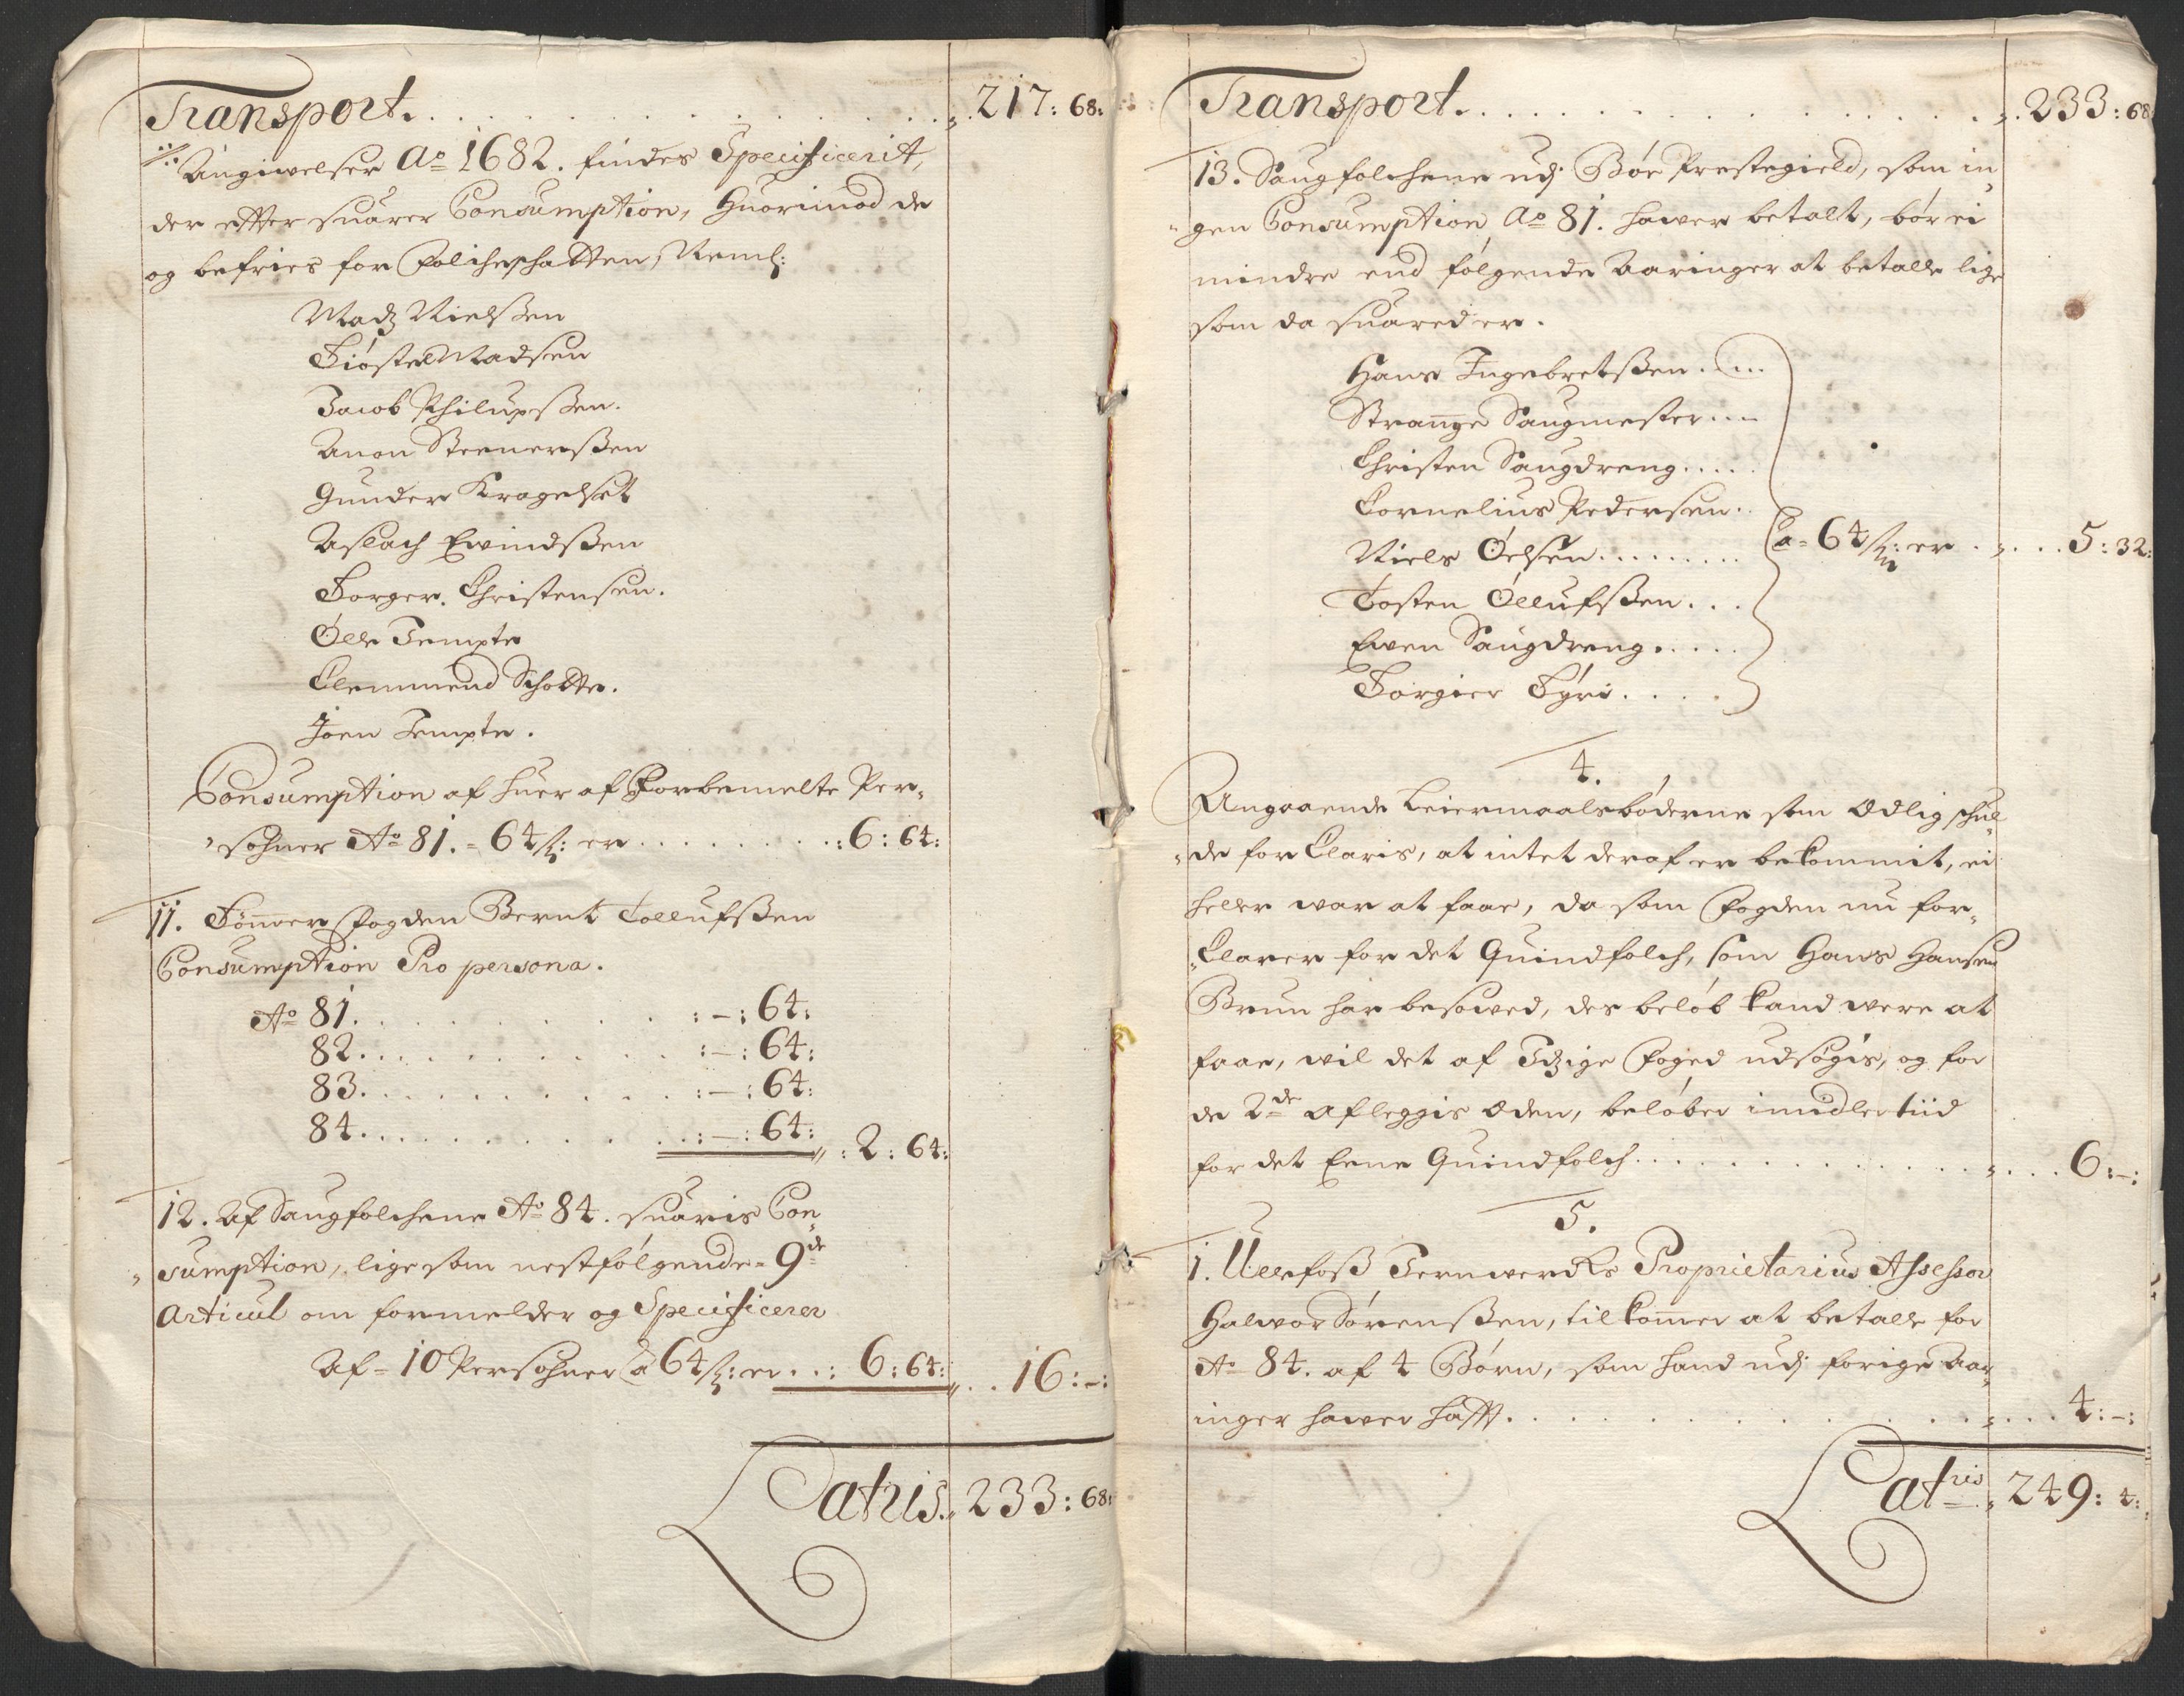 Transport. . . . . . . . . . . . . . . . 217: 68:
Angivelser Ao 1682. findes Specificerit,
der effter suarer Consumption, Huorimod de
og befries for Folcheschatten, Neml:
Madz Nielssen
Kiøstel Madsen
Jacob Philupssen.
Anon Steenerssen
Gunder Kragelset
Aslach Ewindssen
Torger. Christensen.
Olle Tempte
Clemmend Schotte.
Joen Tempte.
Consumption af huer af Forbemelte Per-
sohner Ao 81. = 64 s: er . . . . . . . . : 6: 64:
11. Tømmer Fogden Bernt Tollufssen
Consumption Pro persona.
Ao 81. . . . . . . . . . . :-: 64:
82. . . . . . . . . . . :-: 64:
83. . . . . . . . . . . :-: 64:
84. . . . . . . . . . . :-: 64: : 2: 64:
12. Af Saugfolchene Ao 84. suaris Con-
sumption, lige som nestfølgende 9de
Articul om formelder og Specificerer
Af = 10 Persohner a 64 s: er . . : 6: 64: . . 16:-:
Latris. 233: 68:
Transport. . . . . . . . . . . . . . . . 233: 68
13. Saugfolchene udj Bøe Prestegield, som in-
gen Consumption Ao 81. hawer betalt, bør ei
mindre end følgende Aaringer at betalle lige
som da suared er.
Hans Ingebretssen. . . .
Strannge Saugmester. . .
Christen Saugdreng. . . . .
Cornelius Pedersen. .
Niels Oelsen. . . . . . . . . a= 64 s: er . . . . . 5: 32:
Tosten Ollufssen. . .
Ewen Saugdreng. . . . .
Torgier Fyri. . . . .
4.
Angaaende Leiermaalsbøderne som Ødlig schul-
de for Claris, at intet deraf er bekommit, ei
heller war at faae, da som Fogden nu for-
Clarer for det Quindfolch, som Hans Hansen
Brun har besøwed, des beløb kand were at
faae, wil det af Itzige Foged udsøgis, og for
de 2de afleggis Eden, beløber imidlertiid
for det Eene Quindfolch. . . . . . . . . . . . . . . 6:-:
5.
1. Ullefoss Jernwercks Proprietarius Assessor
Halwor Sørenssen, tilkommer at betalle for
Ao 84. af 4 Børn, som hand udj forige Aar-
inger hawer hafft. . . . . . . . . . . . . . . . 4:-:
Latris 249: 4: